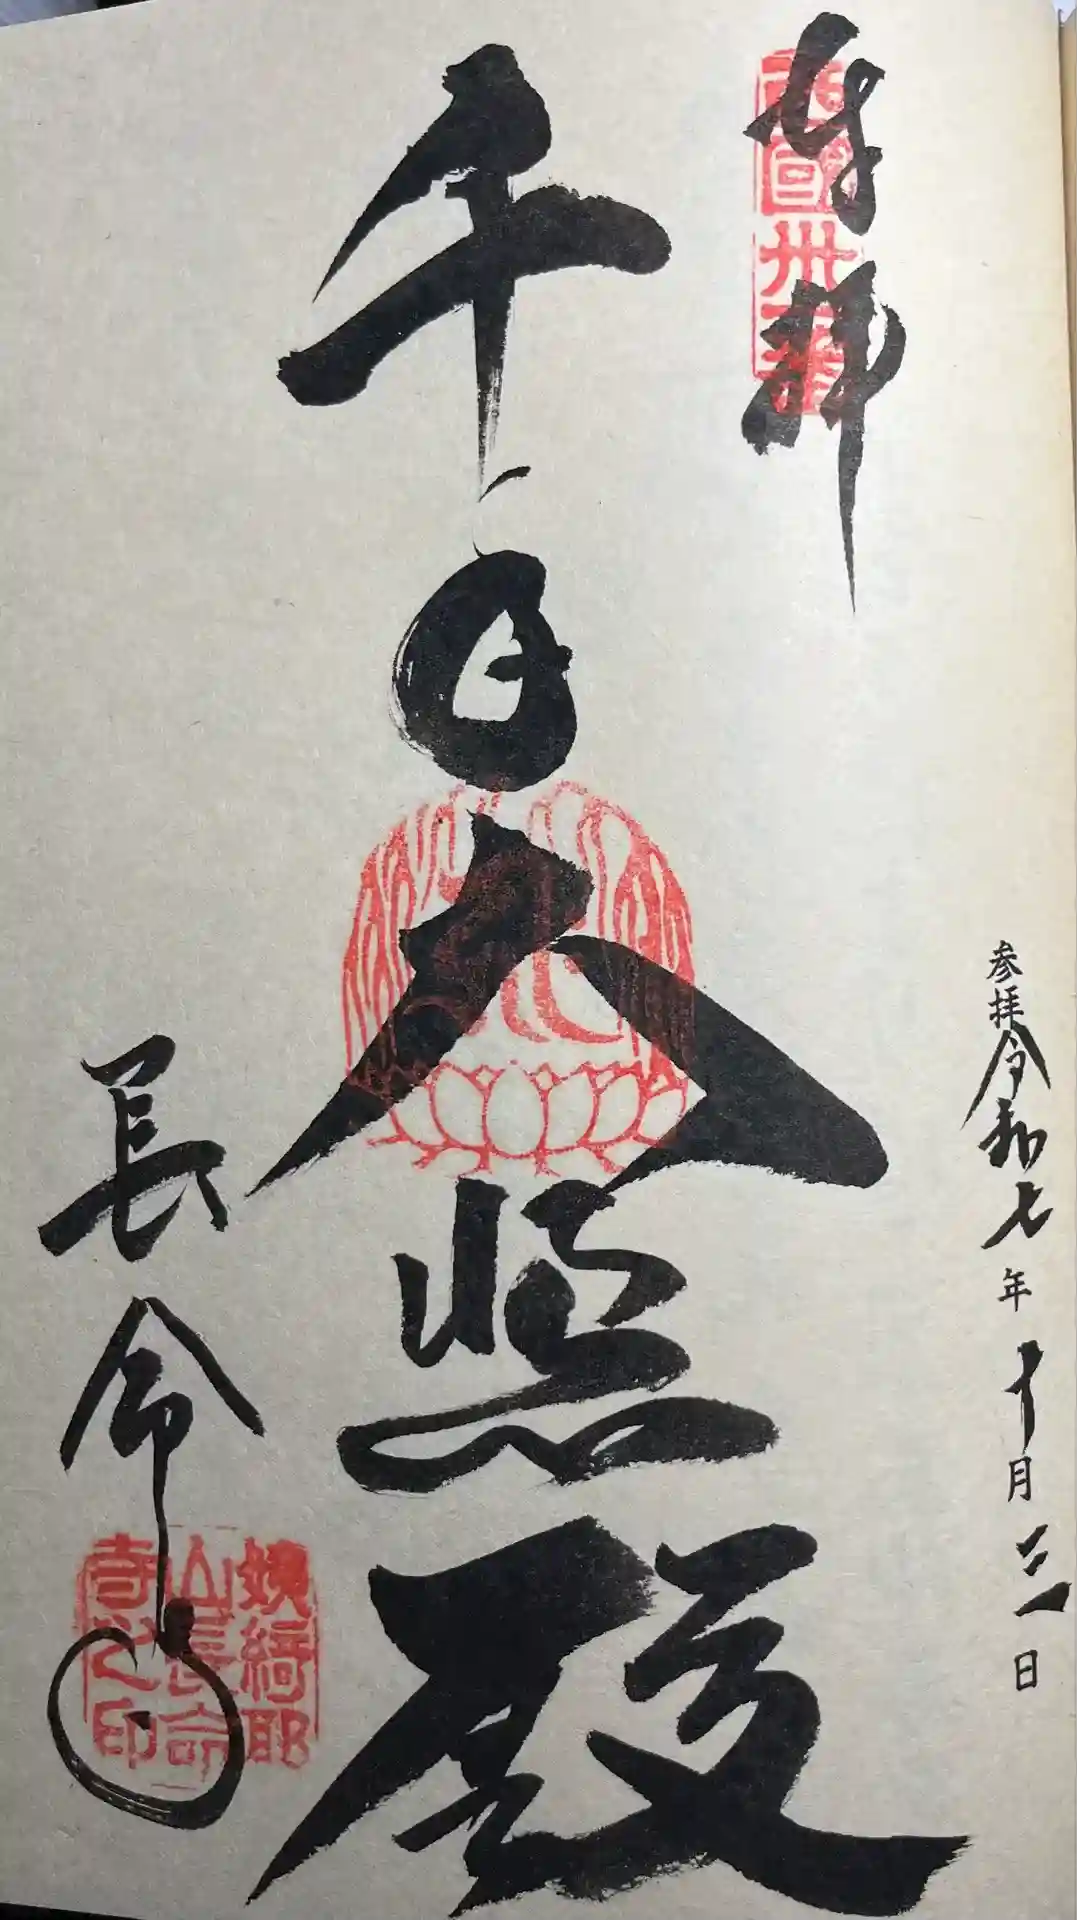 参拝令和七年十月三日
奉拝
西国卅一番
千日大照殿
長命寺
姨綺耶
山長命
寺之印